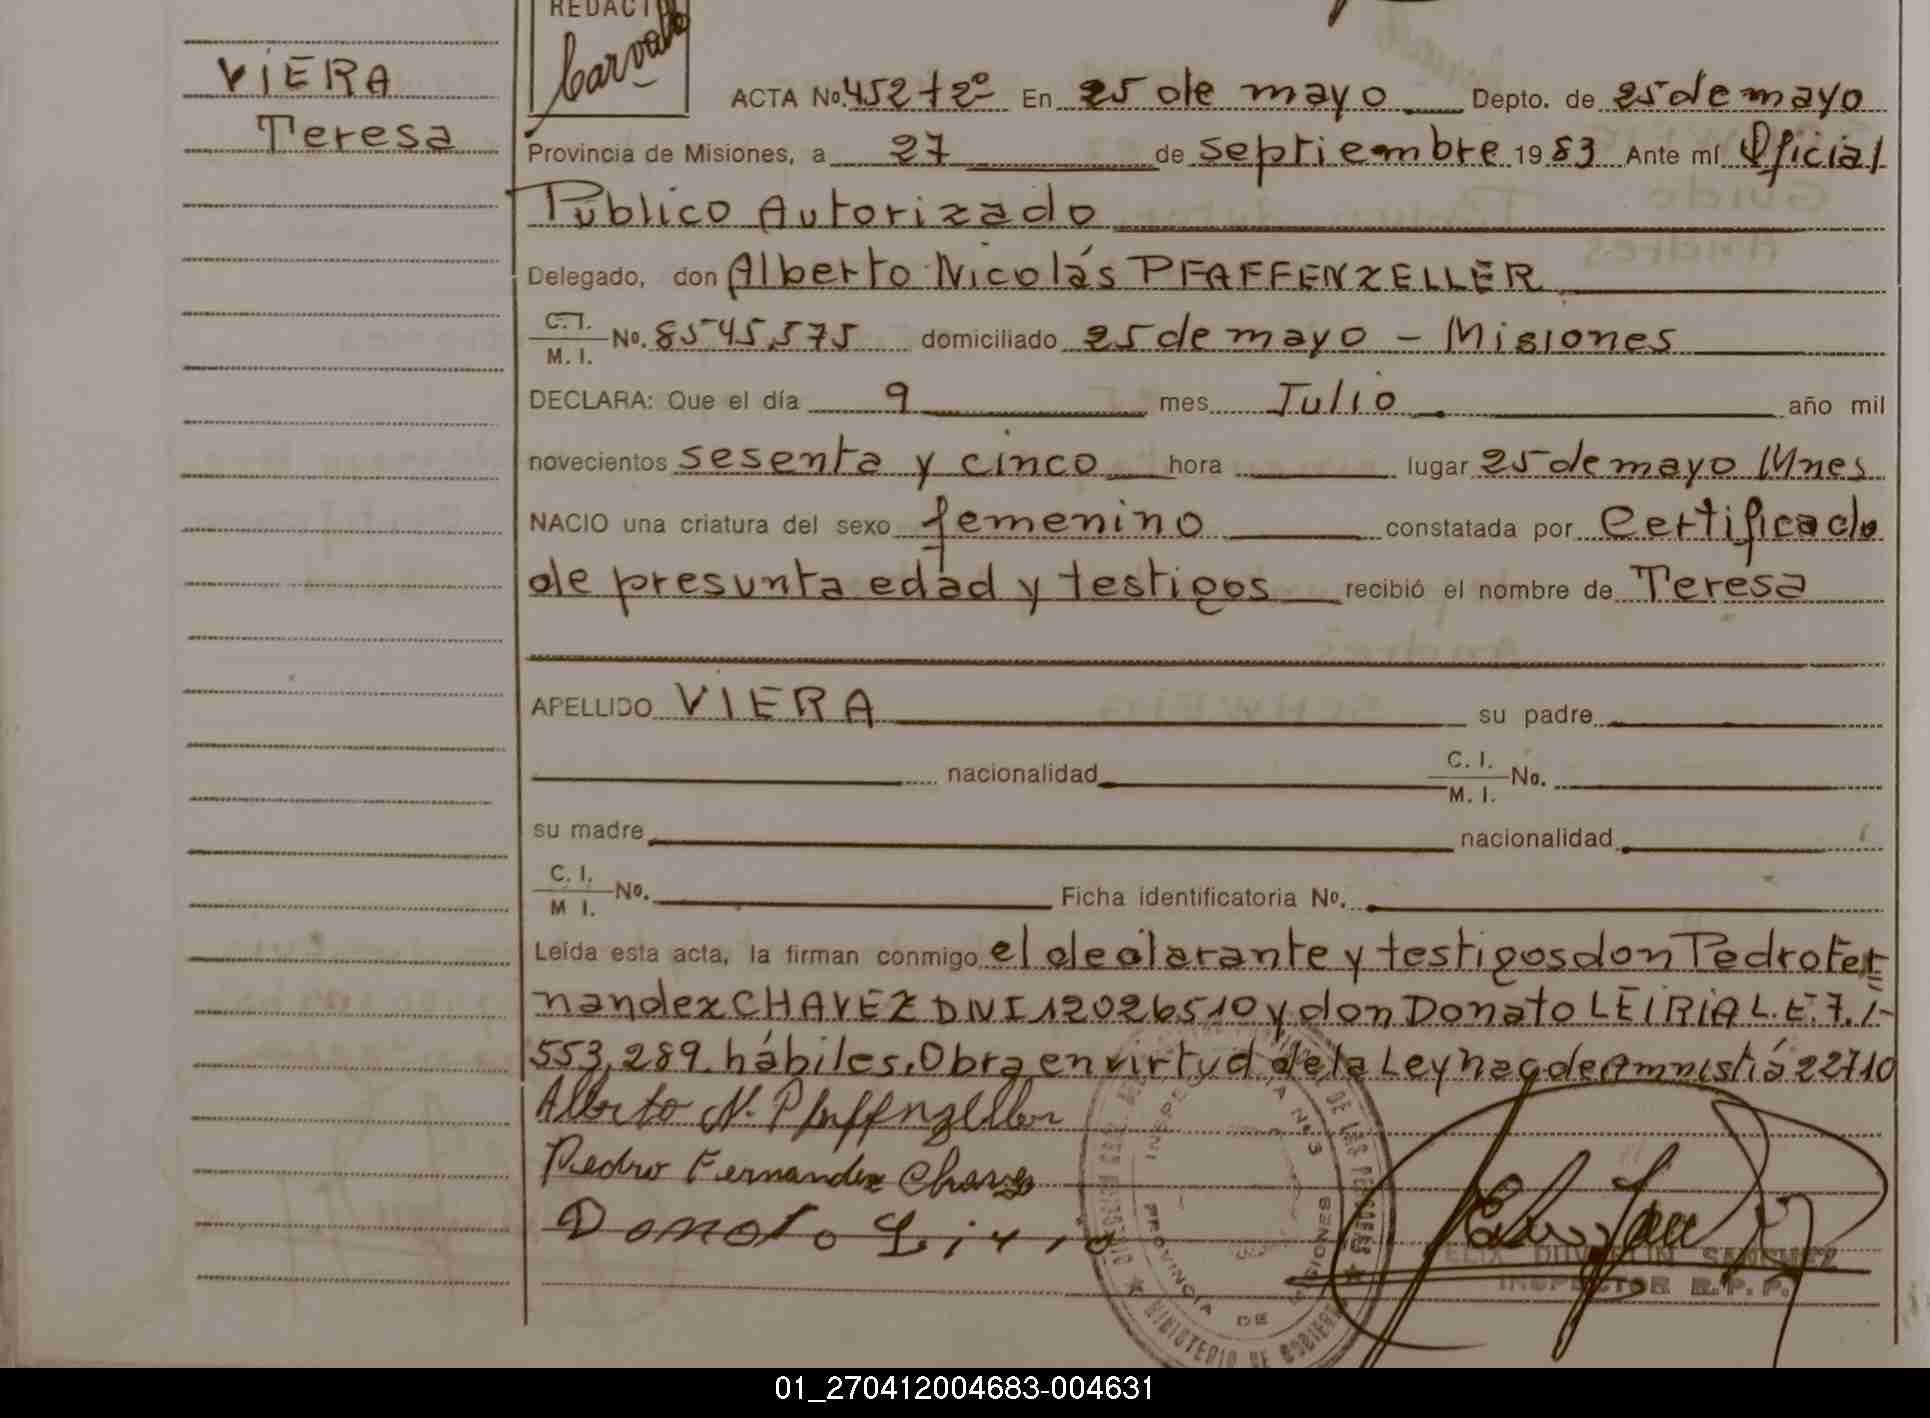 REDACT
Carvallo
VIERA
Teresa
ACTA No. 452 t 2º En 25 de mayo Depto. de 25 de mayo
Provincia de Misiones, a 27 de septiembre 19 83 Ante mí Oficial
Público Autorizado
Delegado, don Alberto Nicolás PFAFFENZELLER
C.I. / M.I. No. 8545,575 domiciliado 25 de mayo - Misiones
DECLARA: Que el día 9 mes Julio año mil
novecientos sesenta y cinco hora lugar 25 de mayo Mnes
NACIO una criatura del sexo femenino constatada por Certificado
de presunta edad y testigos recibió el nombre de Teresa
APELLIDO VIERA su padre
nacionalidad C. I. / M. I. No.
su madre nacionalidad
C. I. / M I. No. Ficha identificatoria No.
Leída esta acta, la firman conmigo el declarante y testigos don Pedro Fer
nandez CHAVEZ DNI 12026510 y don Donato LEIRIA L.E. 7.1-
553,289 hábiles. Obra en virtud de la Ley nac de Amnistiá 22710
Alberto N. Pfaffenzeller
Pedro Fernandez Chavez
Donato Liria
INSPECTOR R.P.P.
PROVINCIA DE MISIONES
MINISTERIO DE GOBIERNO
01_270412004683-004631